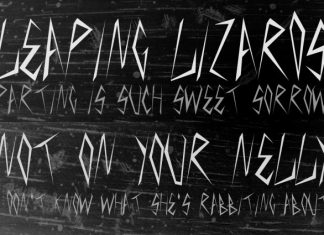 LEAPING LIZARDS
PARTING IS SUCH SWEET SORROW
NOT ON YOUR NELLY
DON'T KNOW WHAT SHE'S RABBITING ABOUT